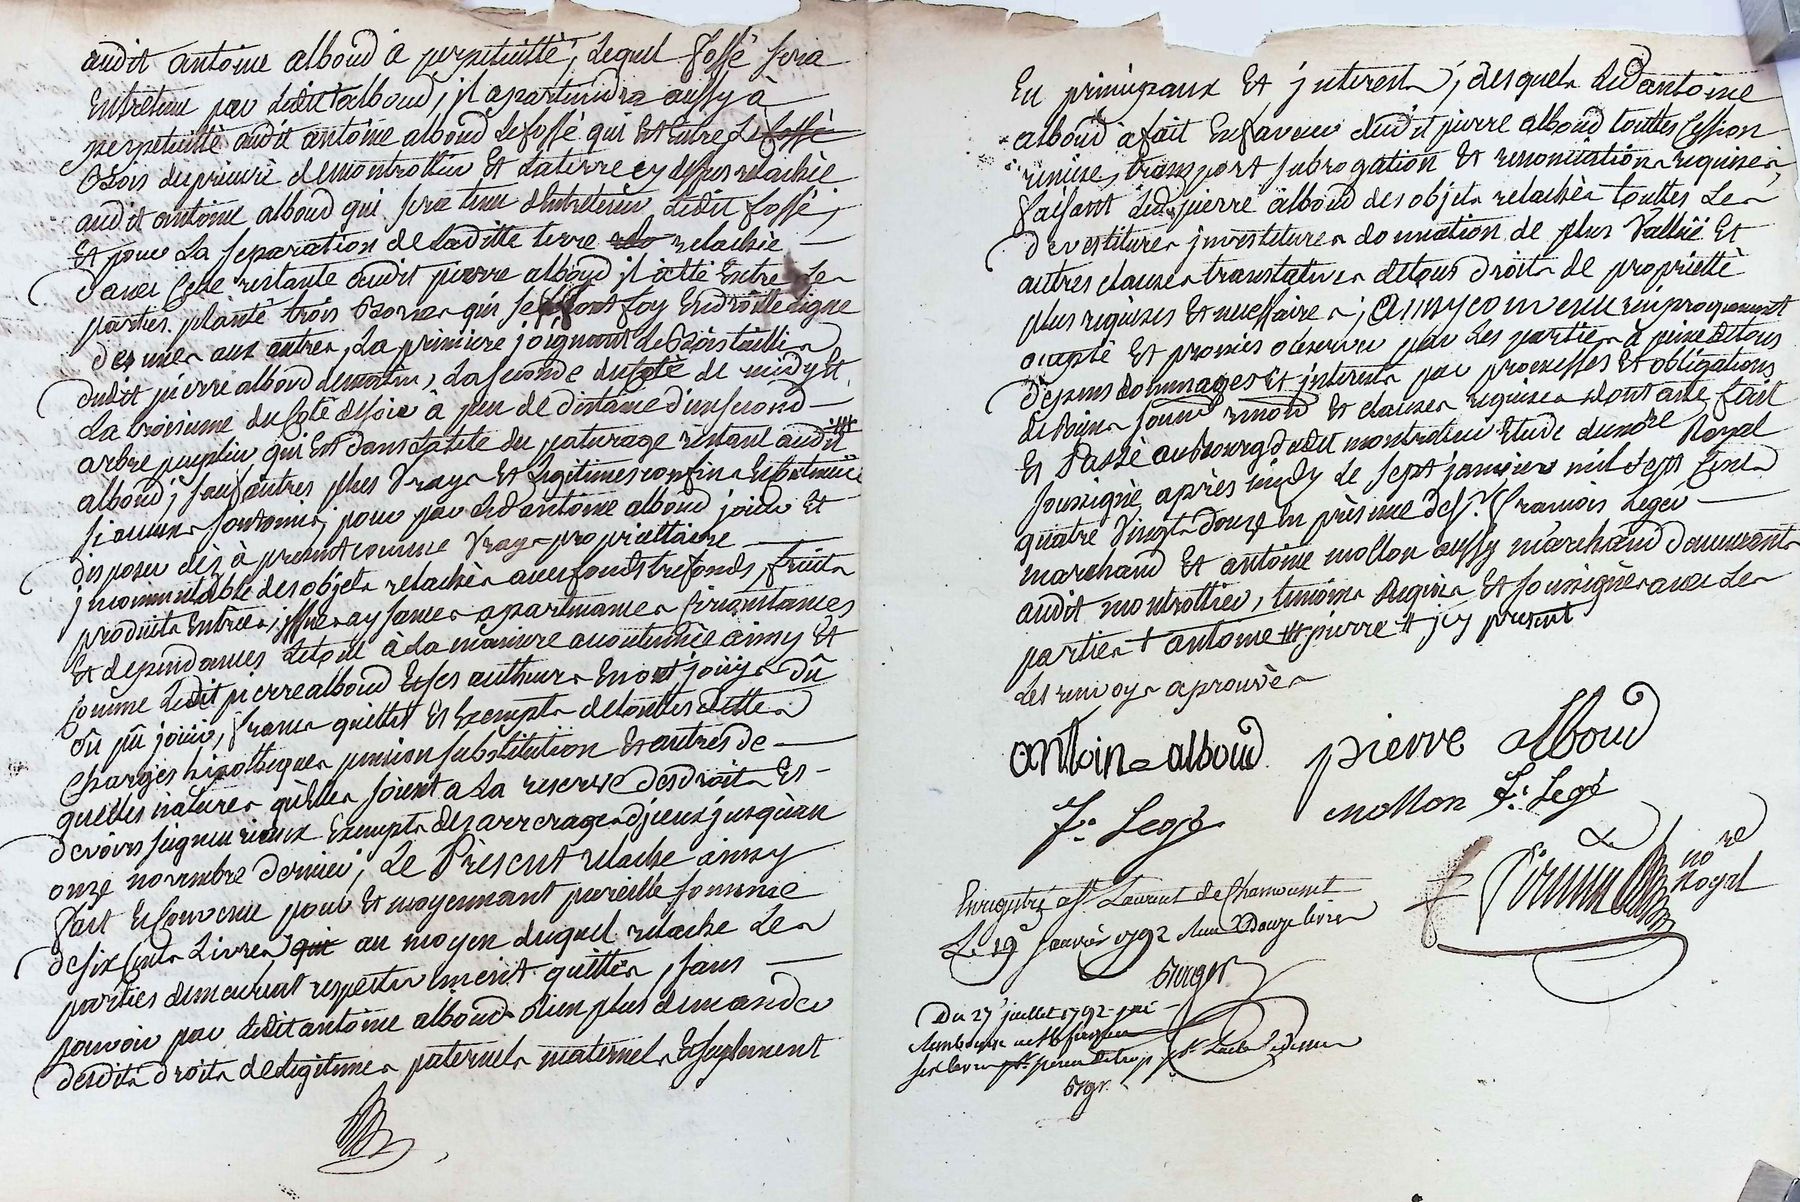 audit antoine alboud à perpétuitté, lequel fossé sera
Entretenu par ledit alboud, jl apartiendra aussy à
perpetuitté audit antoine alboud le fossé qui Est Entre le fossé
Bois du prieuré de montrottier Et la terre cy dessus relachée
audit antoine alboud qui sera tenu d'entretenir ledit fossé,
Et pour la separation de laditte terre relachée
d'avec Celle restante audit pierre alboud jl a étté Entre les
parties planté trois Bornes qui se font foy En droitte ligne
des unes aux autres, la premiere joignant le Bois taillis
dudit pierre alboud de matin, la seconde du Coté de midy Et
la troisieme du Coté de soir à peu de distance d'un second
arbre peuplier qui Est dans la tete du paturage restant audit
alboud, sauf autres plus vrays Et legitimes confins Et
si aucuns sont omis, pour par led antoine alboud jouir Et
disposer dès à present comme vray proprietaire
jncommutable des objets relachés avec fonds trefonds, fruits
produits Entrées, jssues aysances apartenances Circonstances
Et dependances le tout à la maniere accoutumée ainsy Et
comme ledit pierre alboud Et ses autheurs En ont jouy dû
où pû jouir, francs quittes Et Exempts de touttes dettes
Charges hipotheques pension substitution Et autres de
quelles natures qu'elles soient a la reserve des droits Et
devoirs seigneuriaux Exempts des arrerages d'jceux jusqu'au
onze novembre dernier, le Présent relache ainsy
fait Et Convenu pour Et moyennant pareille somme
de six Cents livres qui au moyen duquel relache les
parties demeurent respectivement quittes, sans
pouvoir par ledit antoine alboud rien plus demander
desdits droits de legitimes paternels maternels Et suplement
En principaux Et jnterests, desquels led antoine
alboud a fait En faveur dudit pierre alboud touttes Cession
remise, transport subrogation Et renonciation requises,
faisant led pierre alboud des objets relachés touttes les
devestitures jnvestitures donnation de plus vallüe Et
autres clauses translatives de tous droits de proprietté
plus requises Et necessaires, ainsy convenu réciproquement
accepté Et promis observer par les parties à peine de tous
dépens dommages Et jnterests par promesses Et obligations
de Biens soumis renond Et clauses requises dont acte fait
Et Passé au bourg dudit montrottier Etude du nore Royal
soussigné après midy le sept janvier mil sept Cent
quatre vingt douze En présence de sr. francois Legé
marchand Et antoine mollon aussy marchand demeurants
audit montrottier, temoins requis Et soussignés avec les
parties + antoine ++ pierre + jcy present
les renvoys aprouvés
antoine alboud pierre alboud
f. Legé mollon f. Legé
nore Royal
Enregistré a St. Laurent de Chamousset
Le 19 Janvier 1792
Du 27 juillet 1792